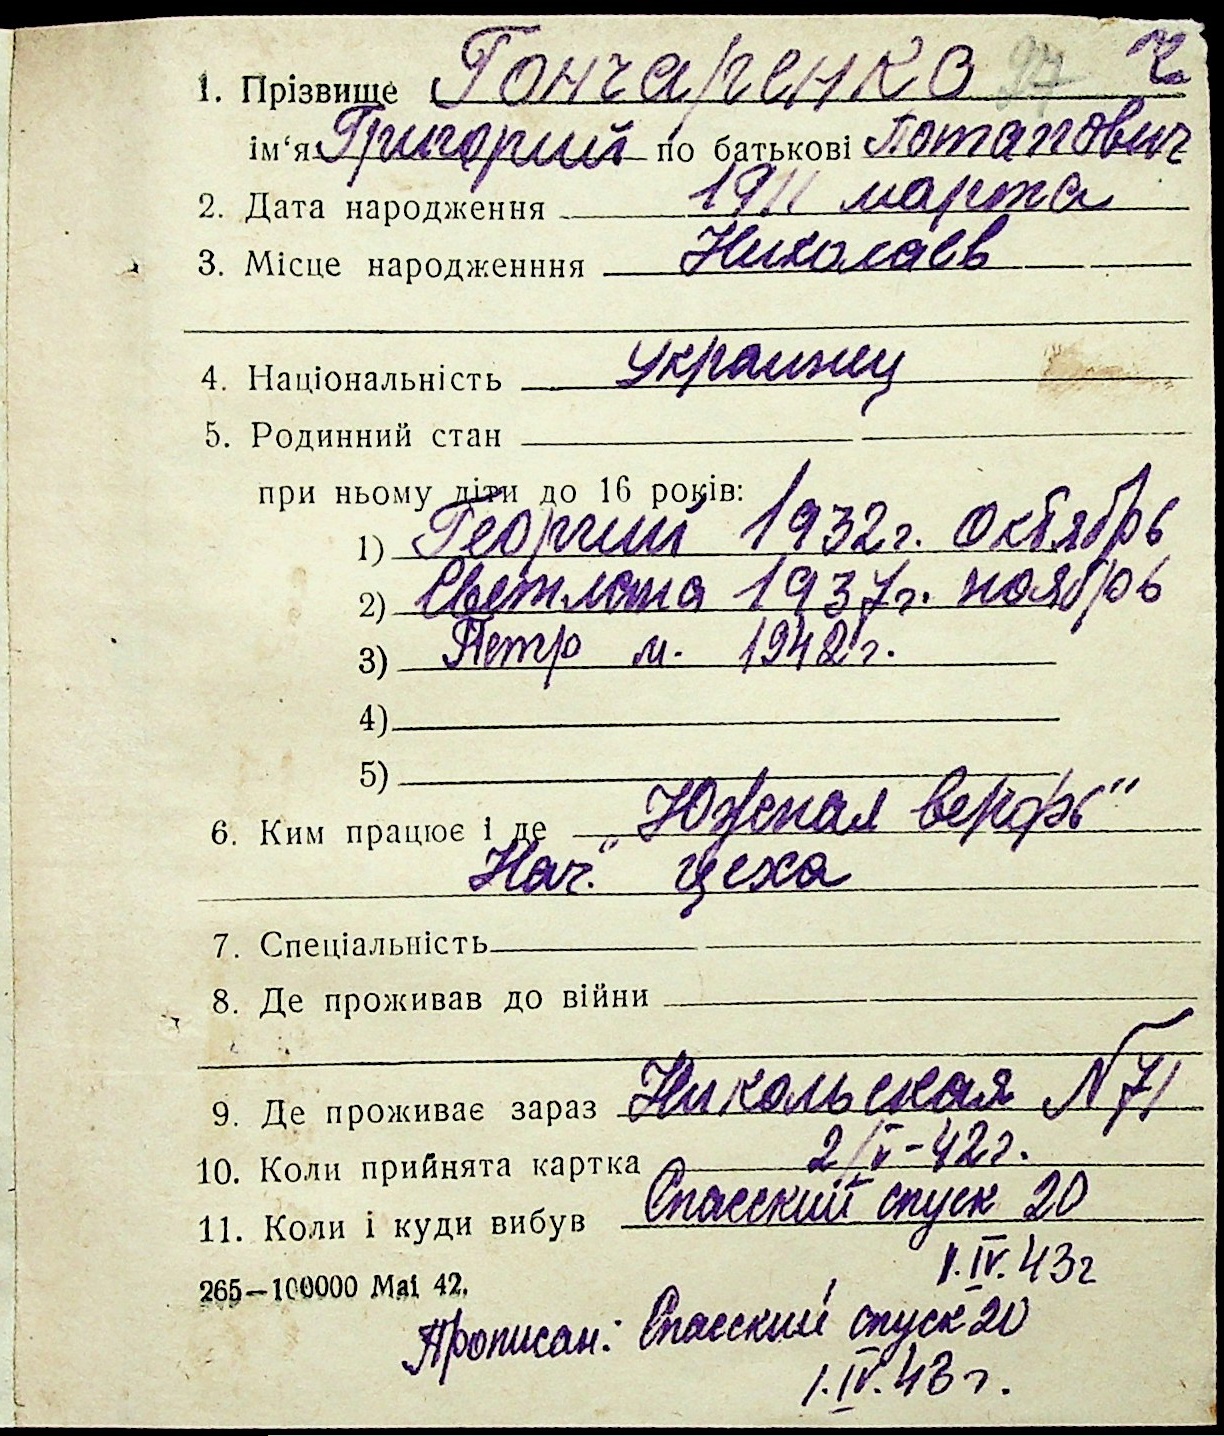 1. Прізвище Гончаренко 97
ім'я Григорий по батькові Потапович
2. Дата народження 1911 марта
3. Місце народженння Николаев
4. Національність украинец
5. Родинний стан
при ньому діти до 16 років:
1) Георгий 1932г. октябрь
2) Светлана 1937г. ноябрь
3) Петр м. 1942г.
4)
5)
6. Ким працює і де Южная верфь"
Нач." цеха
7. Спеціальність
8. Де проживав до війни
9. Де проживає зараз Никольская №71
10. Коли прийнята картка 2/IV-42г.
11. Коли і куди вибув Спасский спуск 20
1.IV.43г
265—100000 Mai 42.
Прописан: Спасский спуск 20
1.IV.43г.